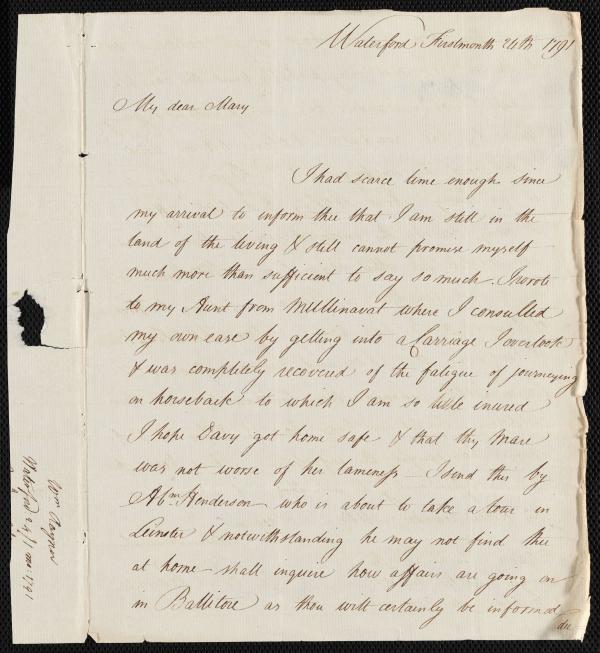 Waterford Firstmonth 24th 1791
My dear Mary
I had scarce time enough since
my arrival to inform thee that I am still in the
land of the living & still cannot promise myself
much more than sufficient to say so much. I wrote
to my Aunt from Mullinavat where I consulted
my own ease by getting into a Carriage I overtook
& was completely recovered of the fatigue of journeying
on horseback to which I am so little inured
I hope Davy got home safe & that thy Mare
was not worse of her lameness — I send this by
Abm Henderson who is about to take a tour in
Leinster & notwithstanding he may not find thee
at home — shall inquire how affairs are going on
in Ballitore as thou wilt certainly be informed
Wm Rayner
Waterford 24/1 mo: 1791